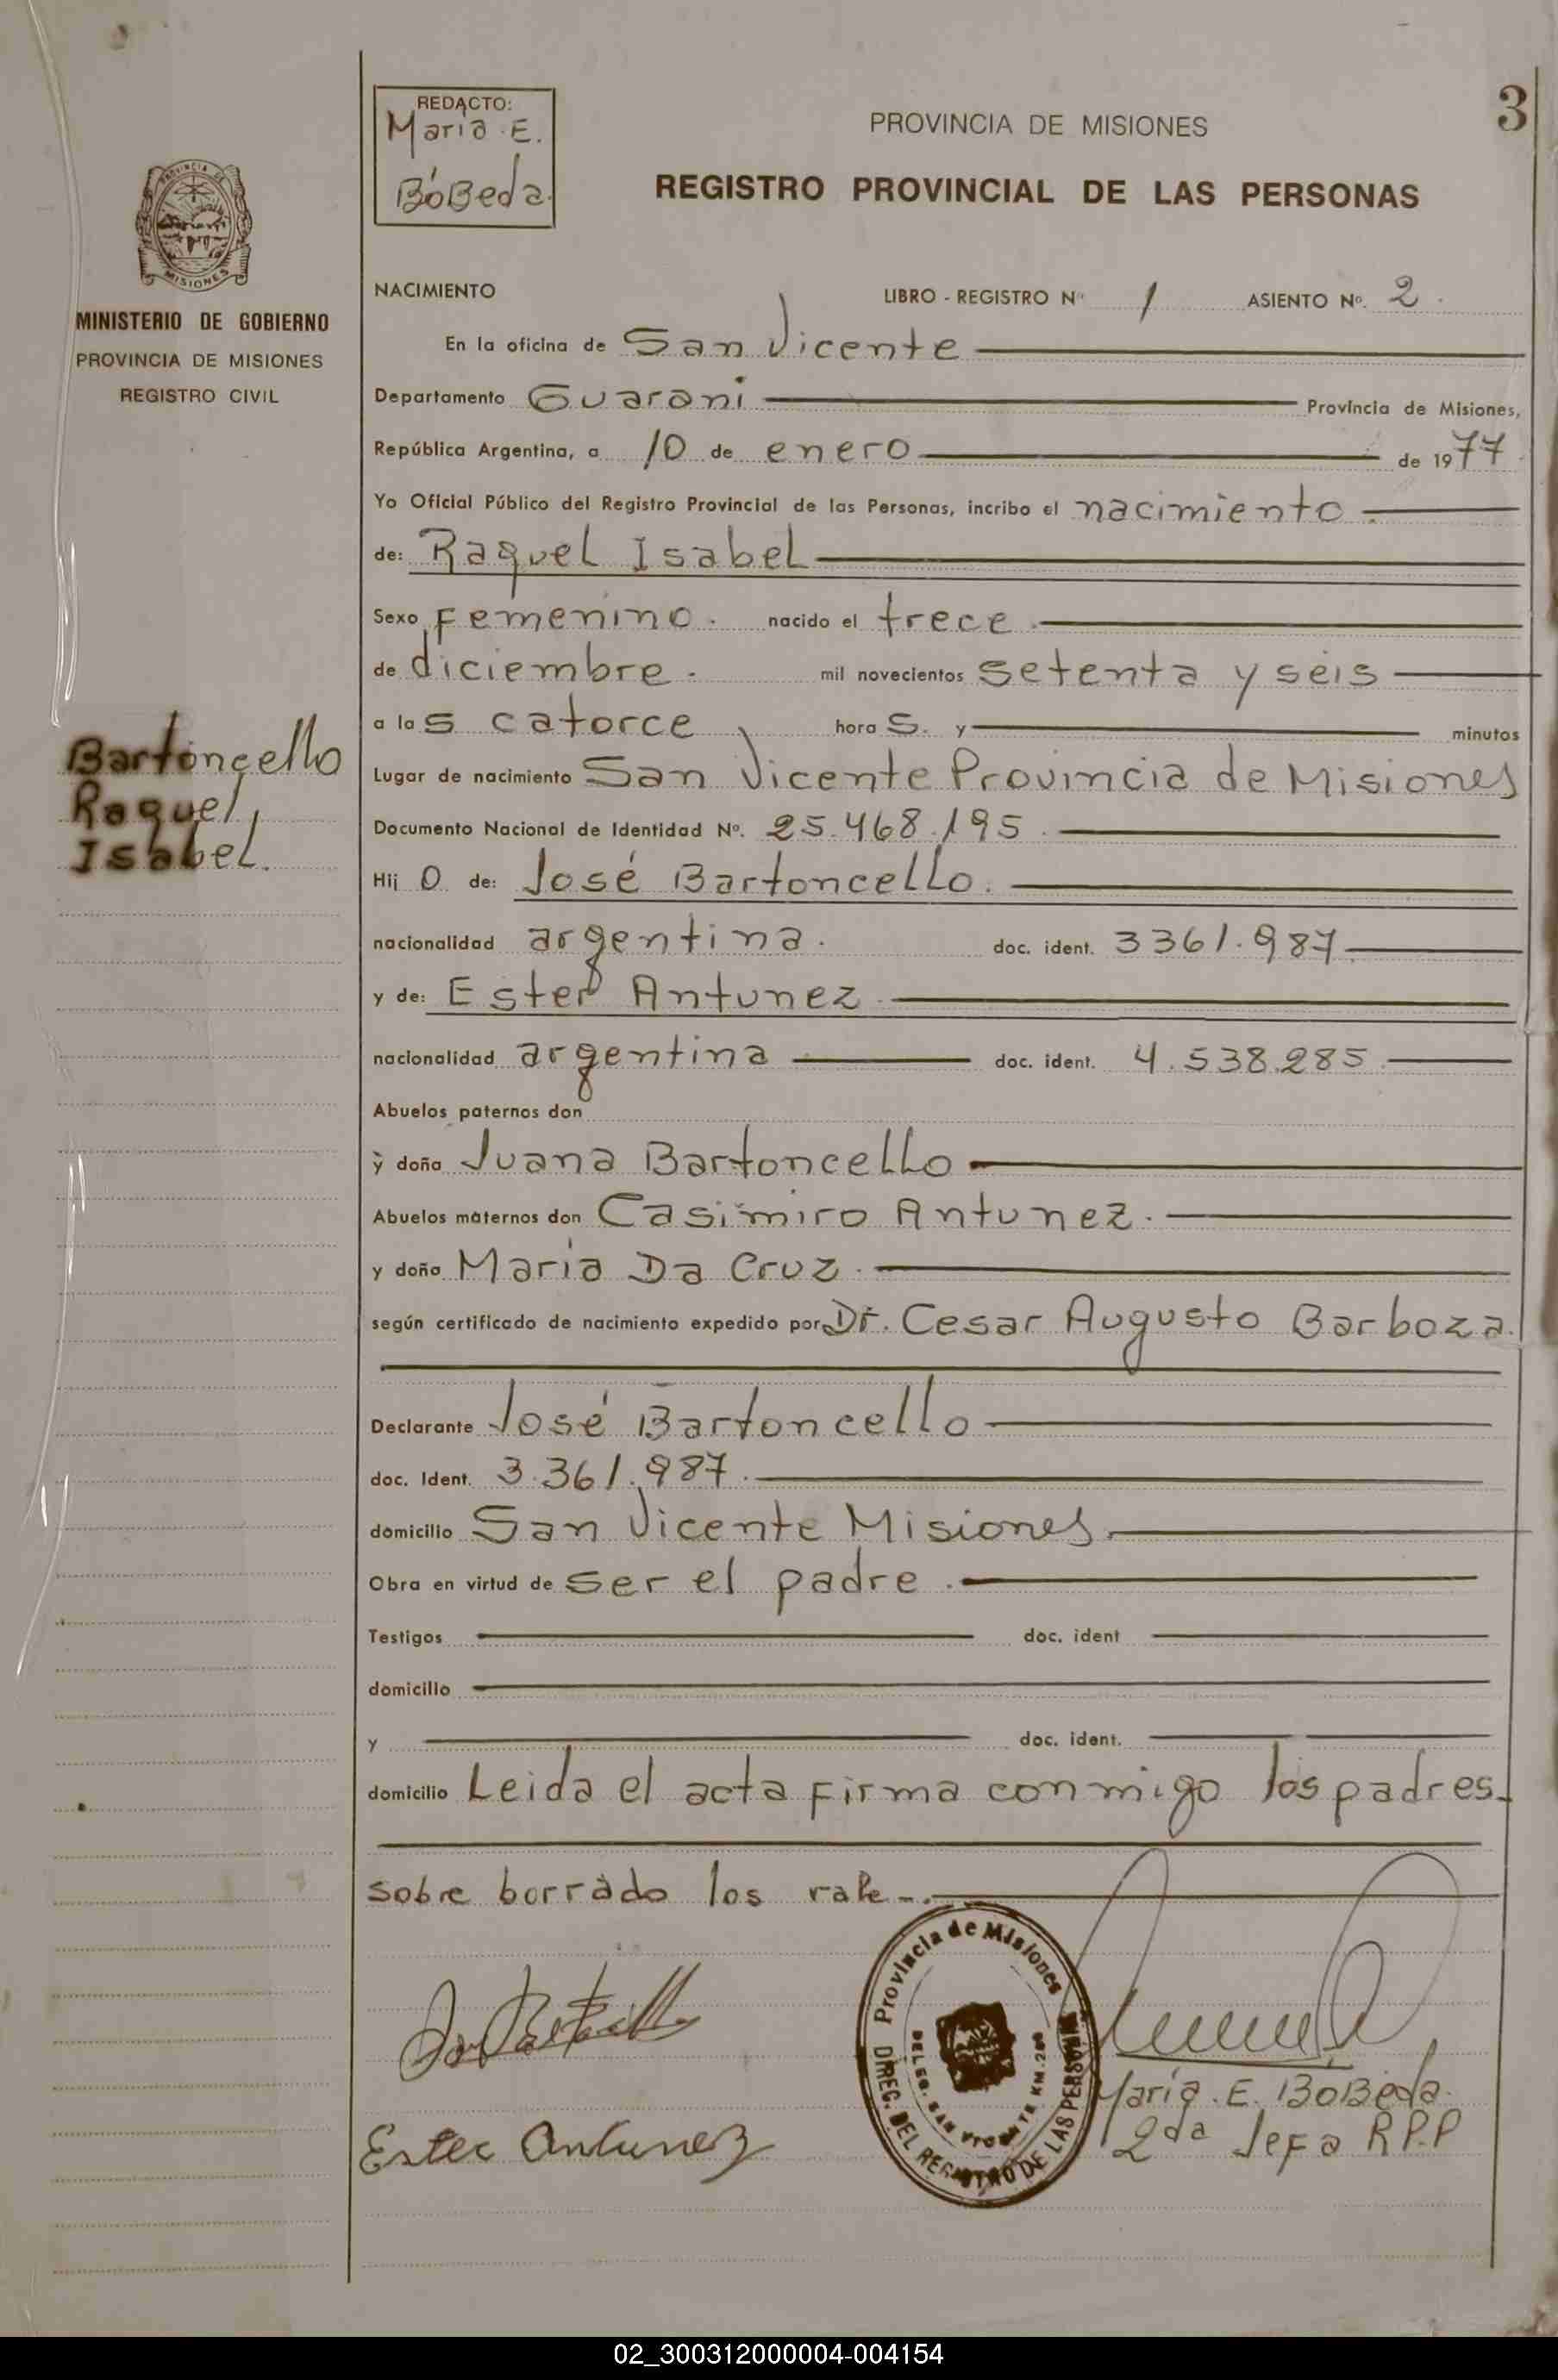 REDACTO:
Maria E.
BóBeda.
PROVINCIA DE MISIONES
3
REGISTRO PROVINCIAL DE LAS PERSONAS
PROVINCIA DE
MISIONES
MINISTERIO DE GOBIERNO
PROVINCIA DE MISIONES
REGISTRO CIVIL
NACIMIENTO LIBRO - REGISTRO Nº 1 ASIENTO Nº. 2.
En la oficina de San Vicente
Departamento Guarani Provincia de Misiones,
República Argentina, a 10 de enero de 1977
Yo Oficial Público del Registro Provincial de las Personas, incribo el nacimiento.
de: Raquel Isabel
Sexo Femenino. nacido el trece.
de diciembre. mil novecientos setenta y seis
a las catorce horas. y minutos
Bartoncello
Raquel
Isabel.
Lugar de nacimiento San Vicente Provincia de Misiones
Documento Nacional de Identidad Nº. 25.468.195.
Hij O de: José Bartoncello.
nacionalidad argentina. doc. ident. 3361.987.
y de: Ester Antunez.
nacionalidad argentina doc. ident. 4.538.285.
Abuelos paternos don
y doña Juana Bartoncello
Abuelos maternos don Casimiro Antunez.
y doña Maria Da Cruz.
según certificado de nacimiento expedido por Dr. Cesar Augusto Barboza.
Declarante José Bartoncello
doc. Ident. 3.361.987.
domicilio San Vicente Misiones.
Obra en virtud de ser el padre.
Testigos doc. ident
domicilio
y doc. ident.
domicilio Leida el acta firma conmigo los padres.
sobre borrado los vale-.
Provincia de Misiones
DIREC. DEL REGISTRO DE LAS PERSONAS
DELEG. SAN VICENTE KM.
Ester Antunez
Maria. E. BóBeda.
2da Jefa R.P.P
02_300312000004-004154